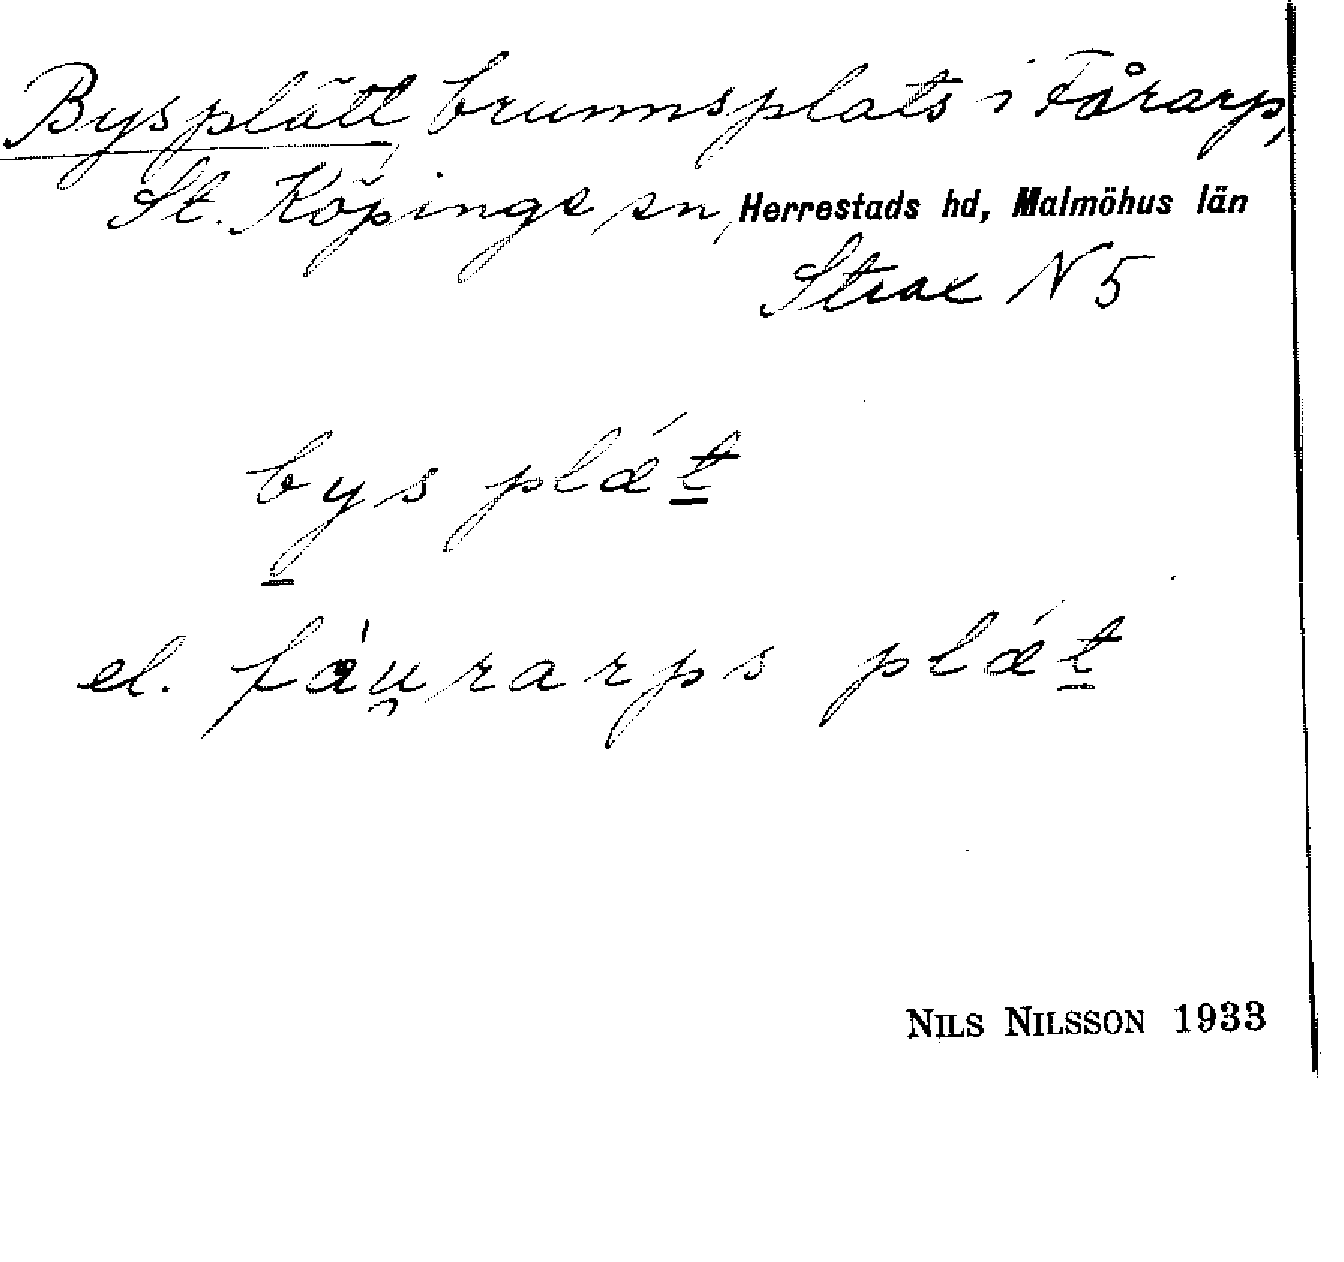 Bysplätt brunnsplats i Fårarp,
St. Köpinge sn, Herrestads hd, Malmöhus län
Strax N 5
bys plǽt
el. fàu̯rarps plǽt
NILS NILSSON 1933